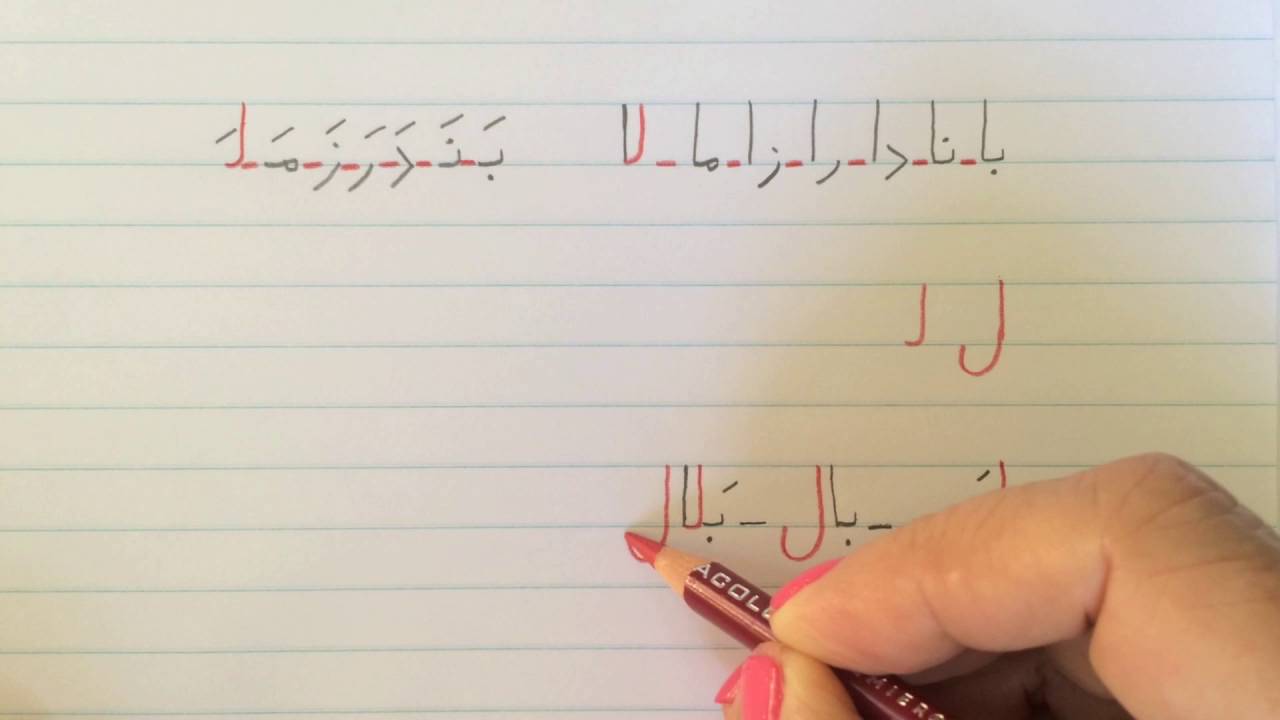 با - نا - دا - را - زا - ما - لا بَـ - نَـ - دَ - رَ - زَ - مَـ - لَـ
ل لـ
- بال - بَلال